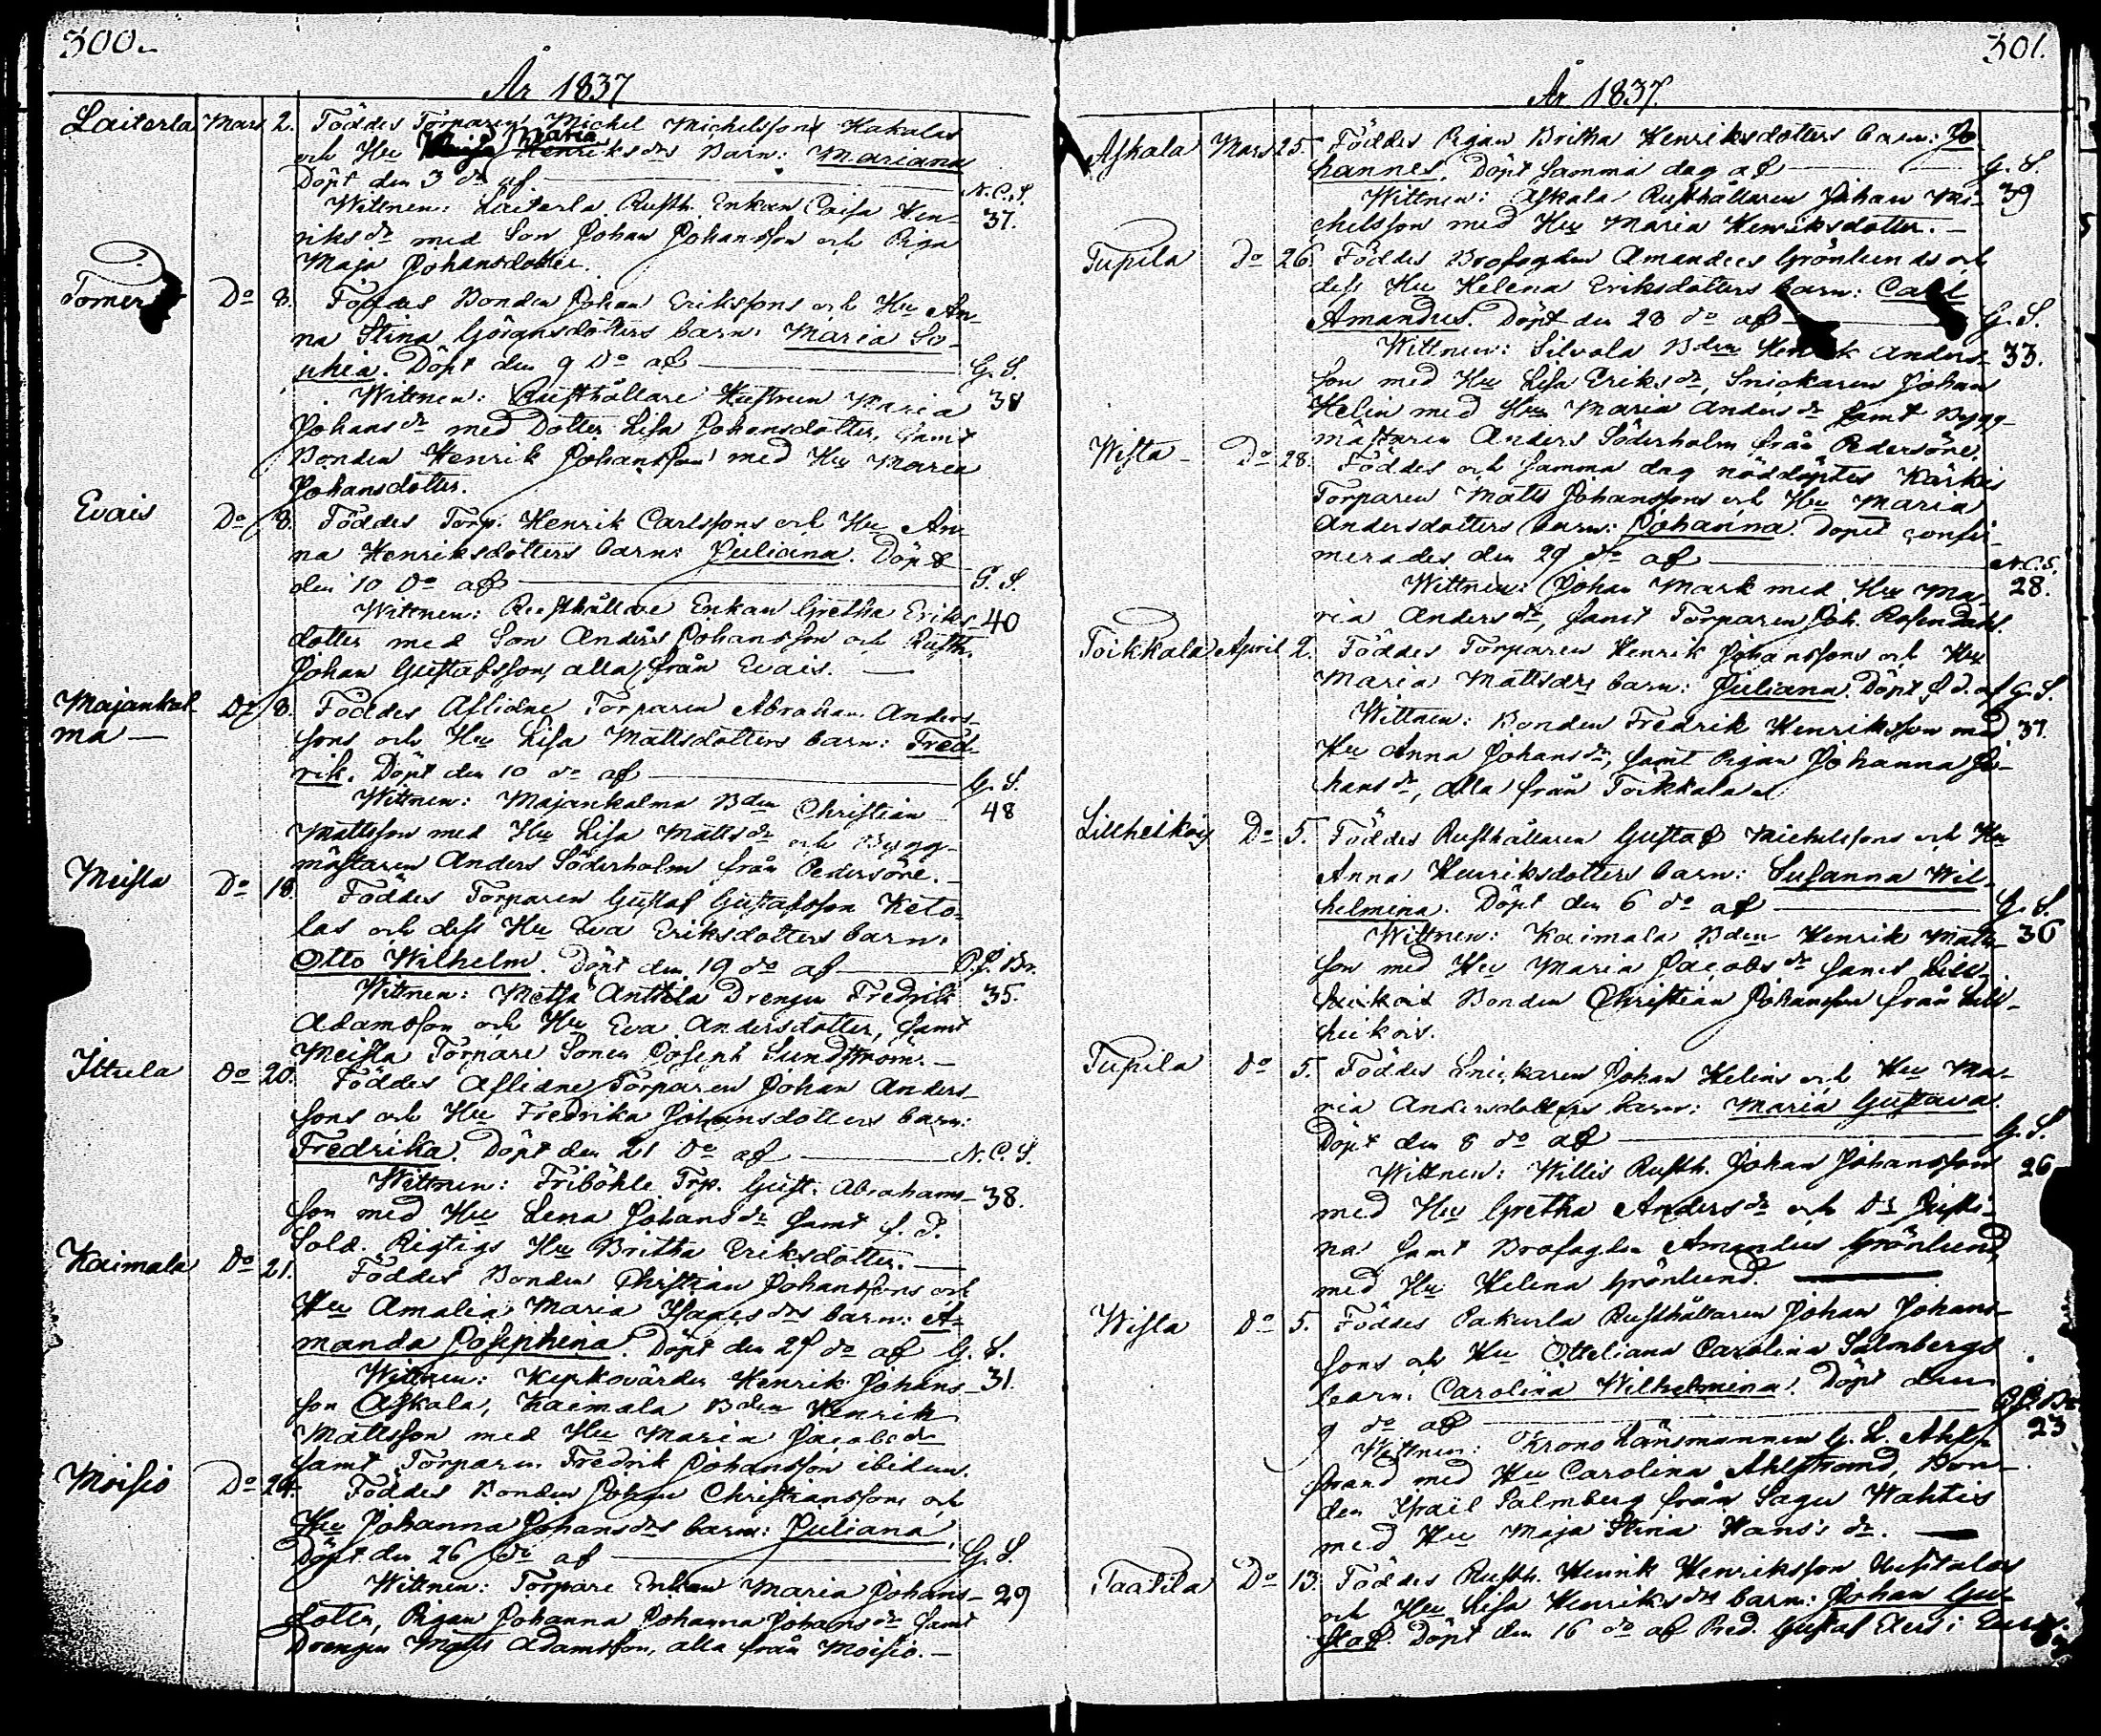 300.
År 1837
Laiterla Mars 2. Föddes Torparen Michel Michelssons Kakalas
och Hu Maria Henriksdrs Barn: Mariana
Döpt den 3 do af N.C.S.
Wittnen: Laiterla Rusth. Enkan Caisa Hen- 37.
riksdr med Son Johan Johansson och Piga
Maja Johansdotter.
Tomer Do 8. Föddes Bonden Johan Erikssons och Hu An-
na Stina Göransdotters barn: Maria So-
phia. Döpt den 9 Do af G. S.
Wittnen: Rusthållare Hustrun Maria 38
Johansdr med Dotter Lisa Johansdotter, samt
Bonden Henrik Johansson med Hu Maria
Johansdotter.
Evais Do 8. Föddes Torp. Henrik Carlssons och Hu An-
na Henriksdotters barn: Juliana. Döpt
den 10 Do af G. S.
Wittnen: Rusthållare Enkan Gretha Eriks- 40
dotter med Son Anders Johansson och Rusth.
Johan Gustafsson, alla från Evais.
Majankal- Do 8. Föddes Aflidne Torparen Abraham Anders-
ma — sons och Hu Lisa Mattsdotters barn: Fred-
rik. Döpt den 10 do af G. S.
Wittnen: Majankalma Bden Christian 48
Mattsson med Hu Lisa Mattsdr och Bygg-
mästaren Anders Söderholm från Pedersöre.
Meisla Do 18. Föddes Torparen Gustaf Gustafsson Keto-
las och dess Hu Eva Eriksdotters barn:
Otto Wilhelm. Döpt den 19 do af P.J. Br.
Wittnen: Metsä Anttila Drengen Fredrik 35.
Adamsson och Hu Eva Andersdotter, samt
Meisla Torpare Sonen Joseph Sundström.
Ittula Do 20. Föddes Aflidne Torparen Johan Anders-
sons och Hu Fredrika Johansdotters barn:
Fredrika. Döpt den 21 Do af N. C. S.
Wittnen: Friböhle Trp. Gust. Abrahams- 38.
son med Hu Lena Johansdr samt f. d.
Sold. Rigtigs Hu Britha Eriksdotter.
Kaimala Do 21. Föddes Bonden Christian Johanssons och
Hu Amalia Maria Isaacsdrs barn: A-
manda Josephina. Döpt den 29 do af G. S.
Wittnen: Kyrkovärden Henrik Johans- 31.
son Askala, Kaimala Bden Henrik
Mattsson med Hu Maria Jacobsdr
samt Torparen Fredrik Johansson ibidem.
Moisio Do 24. Föddes Bonden Johan Christianssons och
Hu Johanna Johansdrs barn: Juliana,
Döpt den 26 do af G. S.
Wittnen: Torpare Enkan Maria Johans- 29
dotter, Pigan Johanna Johanna Johansdr samt
Drengen Matts Adamsson, alla från Moisio.
301.
År 1837.
Askala Mars 25. Föddes Pigan Britha Henriksdotters barn: Jo-
hannes. Döpt samma dag af G. S.
Wittnen: Askala Rusthållaren Johan Mi- 39
chelsson med Hu Maria Henriksdotter.
Tupila Do 26. Föddes Brofogden Amandus Grönlunds och
dess Hu Helena Eriksdotters barn: Carl
Amandus. Döpt den 28 do af G. S.
Wittnen: Silvola Bden Henrik Anders- 33.
son med Hu Lisa Eriksdr, Snickaren Johan
Helin med Hu Maria Andersdr samt Bygg-
mästaren Anders Söderholm från Pedersöre.
Wista Do 28. Föddes och samma dag nöddöptes Kärkis
Torparen Matts Johanssons och Hu Maria
Andersdotters barn: Johanna. Dopet confir-
merades den 29 do af N.C.S.
Wittnen: Johan Mark med Hu Ma- 28.
ria Andersdr, samt Torparen Joh. Rosendahl.
Toikkala April 2. Föddes Torparen Henrik Johanssons och Hu
Maria Mattsdrs barn: Juliana. Döpt s. d. af G. S.
Wittnen: Bonden Fredrik Henriksson med 37.
Hu Anna Johansdr, samt Pigan Johanna Jo-
hansdr, alla från Toikkala.
Lillheikois Do 5. Föddes Rusthållaren Gustaf Michelssons och Hu
Anna Henriksdotters barn: Susanna Wil-
helmina. Döpt den 6 do af G. S.
Wittnen: Kaimala Bden Henrik Matts- 36
son med Hu Maria Jacobsdr samt Lill-
heikois Bonden Christian Johansson från Lill-
heikois.
Tupila Do 5. Föddes Snickaren Johan Helins och Hu Ma-
ria Andersdotters barn: Maria Gustava.
Döpt den 8 do af G. S.
Wittnen: Willis Rusth. Johan Johansson 26
med Hu Gretha Andersdr och Dr Justi-
na samt Brofogden Amandus Grönlund
med Hu Helena Grönlund.
Wista Do 5. Föddes Pakurla Rusthållaren Johan Johans-
sons och Hu Otteliana Carolina Salmbergs
barn: Carolina Wilhelmina. Döpt den
9 do af P.J. Br.
Wittnen: Krono Länsmannen G. L. Ahl- 23
strand med Hu Carolina Ahlstrand, Bon-
den Israel Salmberg från Sagu Wahtis
med Hu Maja Stina Hans's dr.
Taatila Do 13. Föddes Rusth. Henrik Henriksson Uusitalos
och Hu Lisa Henriksdrs barn: Johan Gu-
staf. Döpt den 16 do af Pred. Gustaf Elers i